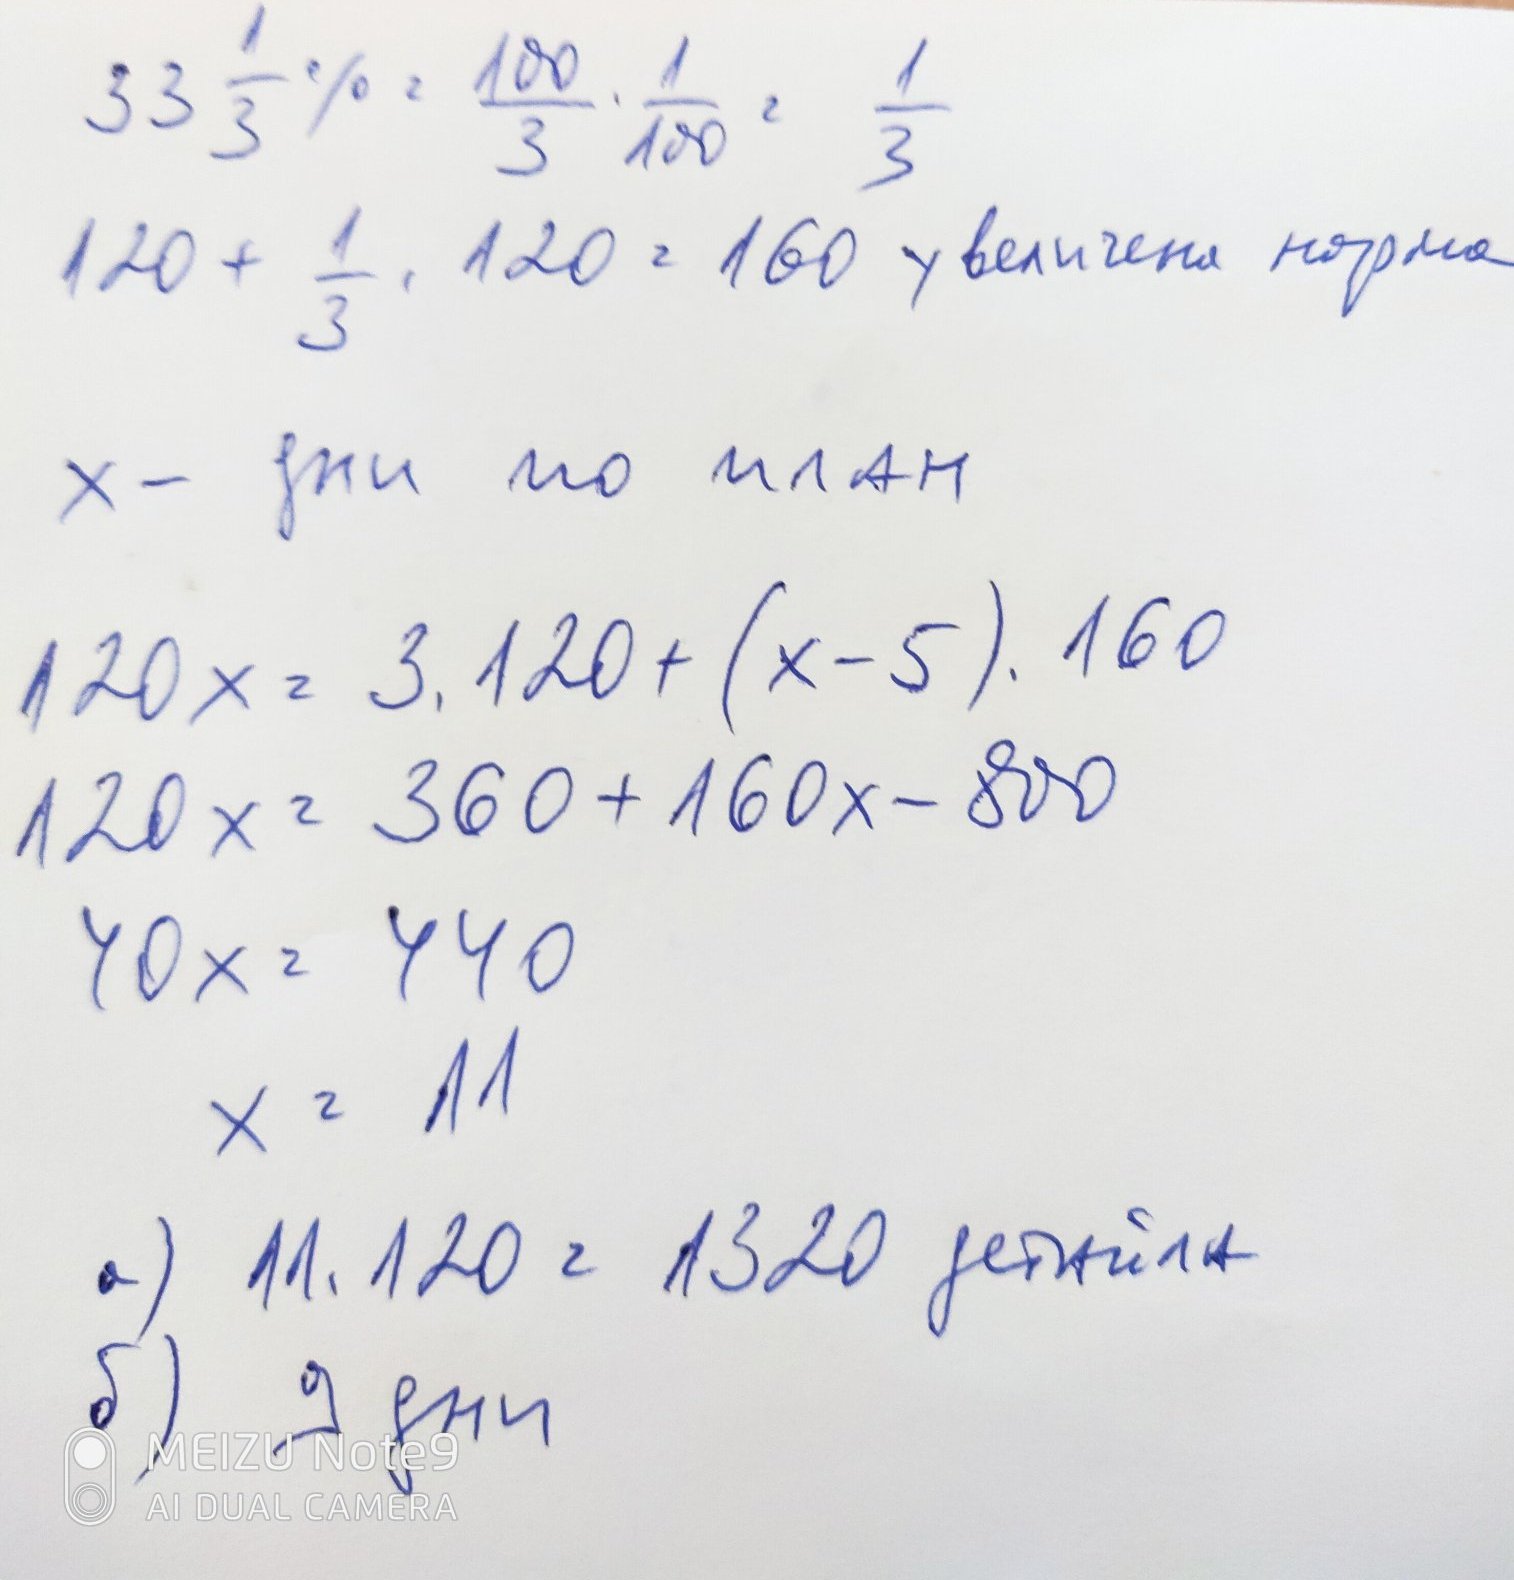 33 1/3 % = 100/3 · 1/100 = 1/3
120 + 1/3 · 120 = 160 увеличена норма
x - дни по план
120x = 3.120 + (x - 5). 160
120x = 360 + 160x - 800
40x = 440
x = 11
а) 11.120 = 1320 детайла
б) 9 дни
MEIZU Note9
AI DUAL CAMERA